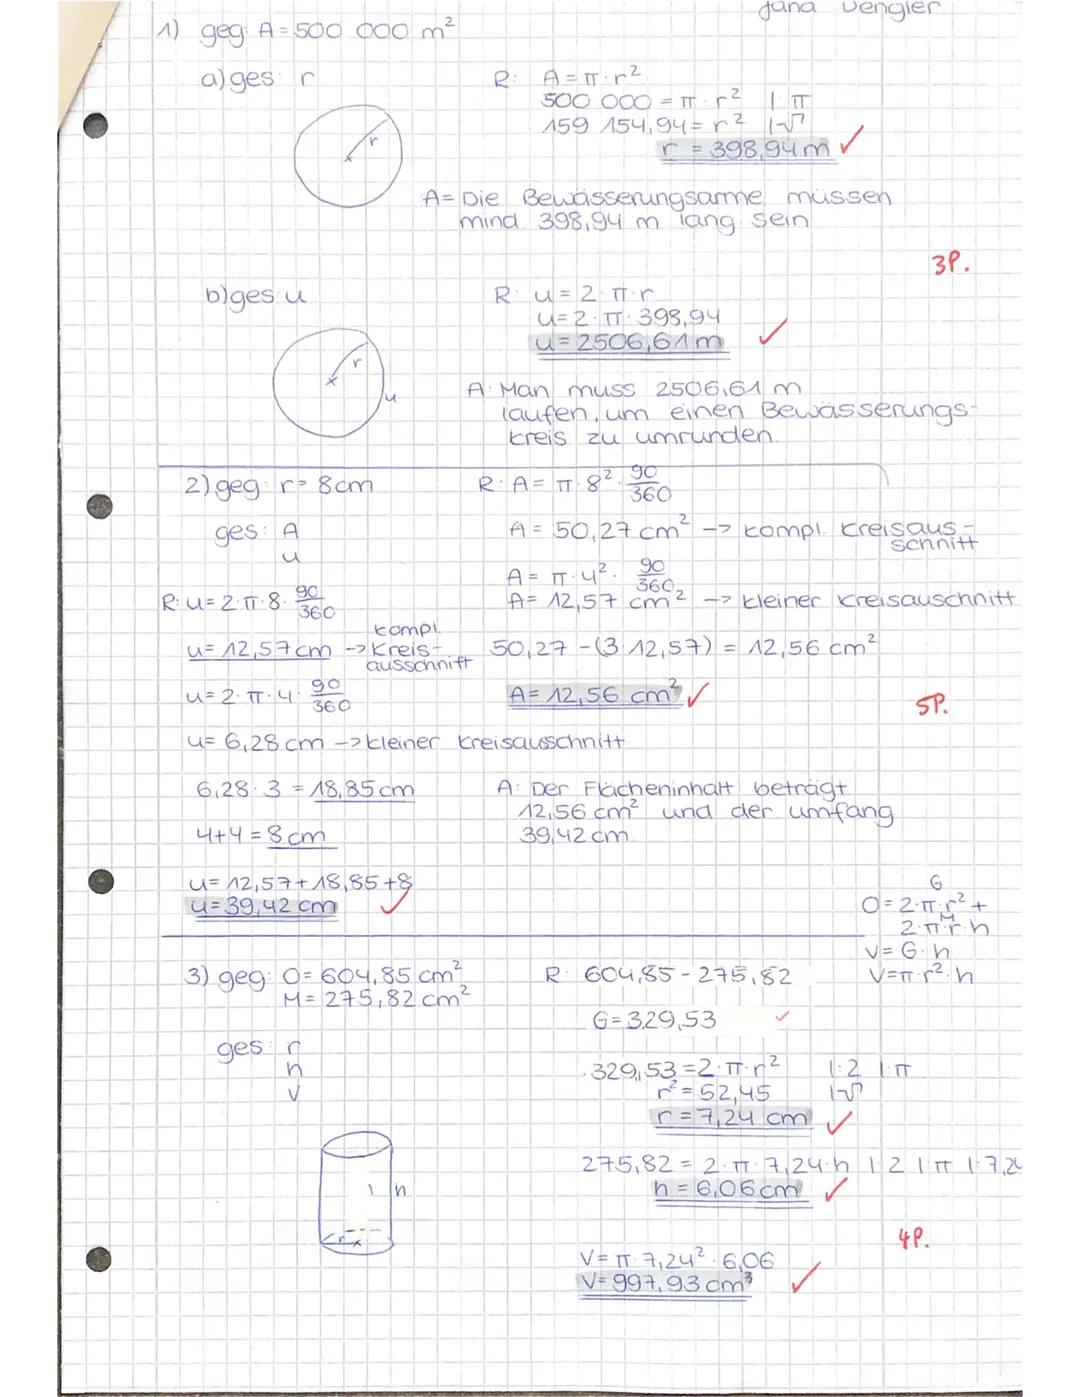 Jana Dengler
1) geg: A = 500 000 m²
a) ges: r
R: A = π · r²
500 000 = π · r² | : π
159 154,94 = r² | √
r = 398,94 m ✓
r
A = Die Bewässerungsarme müssen
mind. 398,94 m lang sein
3P.
b) ges: u
R: u = 2 · π · r
u = 2 · π · 398,94
u = 2506,61 m ✓
r
u
A: Man muss 2506,61 m
laufen, um einen Bewässerungs-
kreis zu umrunden.
2) geg: r = 8 cm
ges: A
u
R: A = π · 8² · 90/360
A = 50,27 cm² -> kompl. Kreisaus-
schnitt
A = π · 4² · 90/360
A = 12,57 cm² -> kleiner Kreisauschnitt
50,27 - (3 · 12,57) = 12,56 cm²
A = 12,56 cm² ✓
5P.
R: u = 2 · π · 8 · 90/360
u = 12,57 cm -> kompl. Kreis-
ausschnitt
u = 2 · π · 4 · 90/360
u = 6,28 cm -> kleiner Kreisausschnitt
6,28 · 3 = 18,85 cm
4 + 4 = 8 cm
u = 12,57 + 18,85 + 8
u = 39,42 cm ✓
A: Der Flächeninhalt beträgt
12,56 cm² und der umfang
39,42 cm.
G
O = 2 · π · r² +
M
2 · π · r · h
V = G · h
V = π · r² · h
3) geg: O = 604,85 cm²
M = 275,82 cm²
ges: r
h
V
R: 604,85 - 275,82
G = 329,53 ✓
329,53 = 2 · π · r² | : 2 | : π
r² = 52,45 | √
r = 7,24 cm ✓
275,82 = 2 · π · 7,24 · h | : 2 | : π | : 7,24
h = 6,06 cm ✓
h
r
4P.
V = π · 7,24² · 6,06
V = 997,93 cm³ ✓